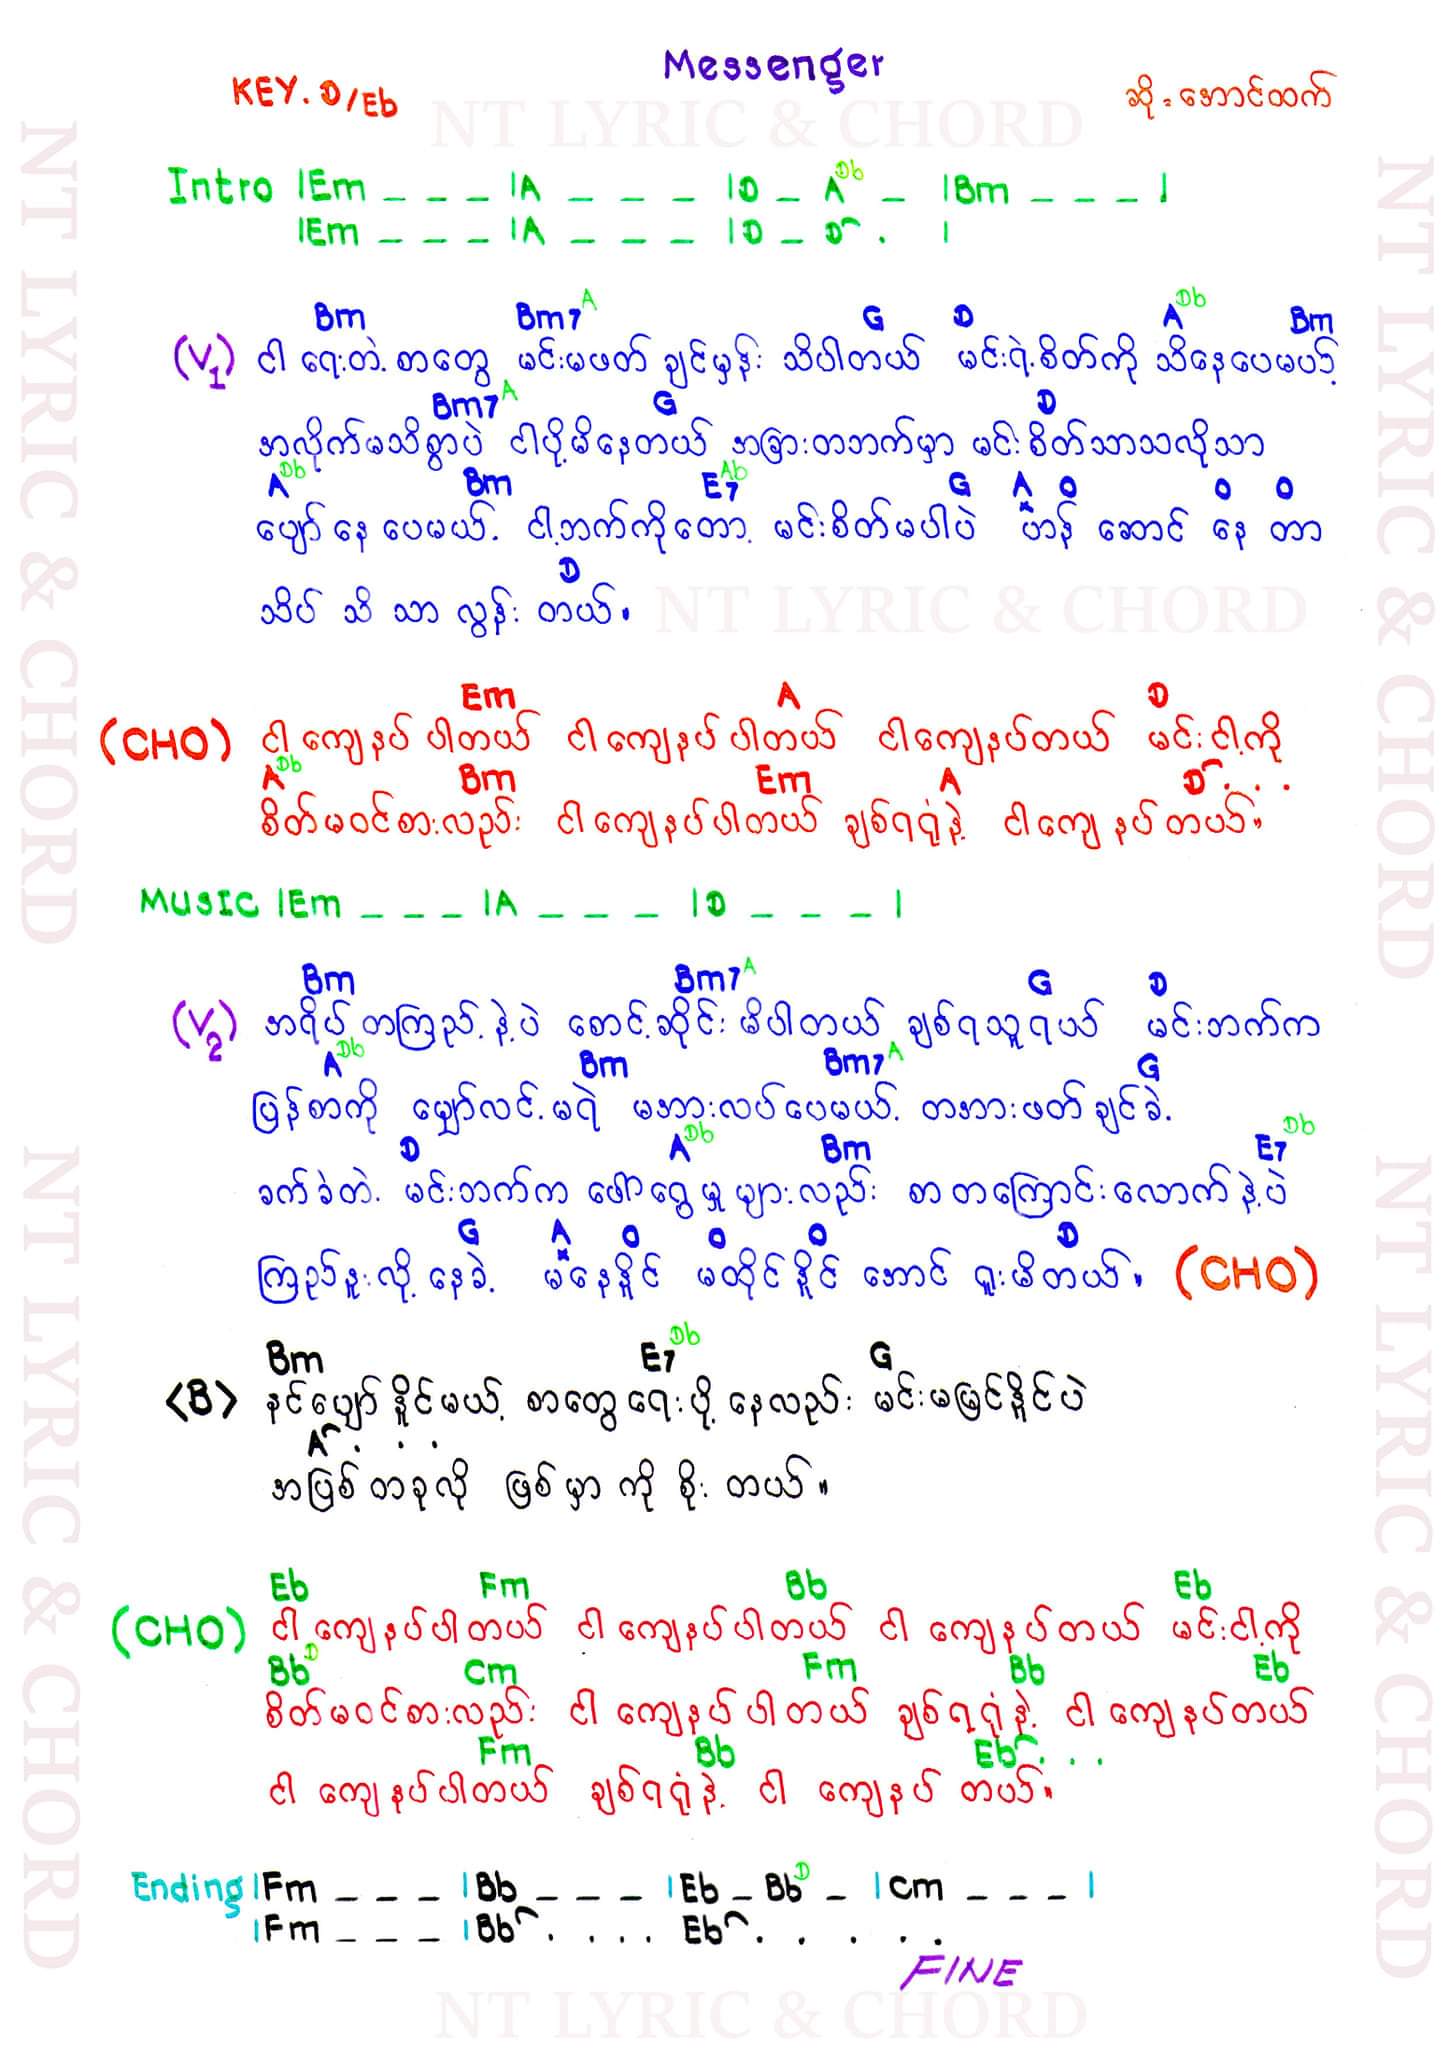 Messenger
KEY. D/Eb
ဆို - အောင်ထက်
NT LYRIC & CHORD
Intro |Em _ _ _ |A _ _ _ |D _ A Db _ |Bm _ _ _ |
|Em _ _ _ |A _ _ _ |D _ D . |
Bm Bm7 A G D A Db Bm
(V1) ငါ ရေးတဲ့ စာတွေ မင်းမဖတ် ချင်မှန်း သိပါတယ် မင်းရဲ့စိတ်ကို သိနေပေမယ့်
Bm7 A G D
အလိုက်မသိစွာပဲ ငါပို့မိနေတယ် အခြားတဘက်မှာ မင်းစိတ်သာသလိုသာ
A Db Bm E7 Ab G A O O O
ပျော် နေ ပေမယ့် ငါ့ဘက်ကိုတော့ မင်းစိတ်မပါပဲ ဟန် ဆောင် နေ တာ
D
သိပ် သိ သာ လွန်း တယ်။
NT LYRIC & CHORD
Em A D
(CHO) ငါ ကျေနပ် ပါတယ် ငါ ကျေနပ် ပါတယ် ငါ ကျေနပ်တယ် မင်းငါ့ကို
A Db Bm Em A D . . .
စိတ်မဝင်စားလည်း ငါ ကျေနပ်ပါတယ် ချစ်ရရုံနဲ့ ငါ ကျေ နပ် တယ်။
MUSIC |Em _ _ _ |A _ _ _ |D _ _ _ |
Bm Bm7 A G D
(V2) အရိပ် တကြည့် နဲ့ပဲ စောင့်ဆိုင်း မိပါတယ် ချစ်ရသူရယ် မင်းဘက်က
A Db Bm Bm7 A G
ပြန်စာကို မျှော်လင့်မရဲ မအားလပ်ပေမယ့် တအားဖတ်ချင်ခဲ့
D A Db Bm E7 Db
ခက်ခဲတဲ့ မင်းဘက်က ဖော်ရွေမှု များလည်း စာတကြောင်းလောက်နဲ့ပဲ
G A O O O D
ကြည်နူးလို့ နေခဲ့ မနေနိုင် မထိုင်နိုင် အောင် ရူးမိတယ်။ (CHO)
Bm E7 Db G
<B> နင်ပျော် နိူင်မယ့် စာတွေ ရေးပို့ နေလည်း မင်းမမြင်နိူင်ပဲ
A . . .
အဖြစ်တခုလို ဖြစ်မှာ ကို စိုး တယ်။
Eb Fm Bb Eb
(CHO) ငါ ကျေနပ်ပါတယ် ငါ ကျေနပ်ပါတယ် ငါ ကျေနပ်တယ် မင်းငါ့ကို
Bb D Cm Fm Bb Eb
စိတ်မဝင်စားလည်း ငါ ကျေနပ်ပါတယ် ချစ်ရရုံနဲ့ ငါ ကျေနပ်တယ်
Fm Bb Eb . . .
ငါ ကျေနပ်ပါတယ် ချစ်ရရုံနဲ့ ငါ ကျေနပ် တယ်။
Ending |Fm _ _ _ |Bb _ _ _ |Eb _ Bb D _ |Cm _ _ _ |
|Fm _ _ _ |Bb . . . . Eb . . . . .
FINE
NT LYRIC & CHORD
NT LYRIC & CHORD
NT LYRIC & CHORD
NT LYRIC & CHORD
NT LYRIC & CHORD